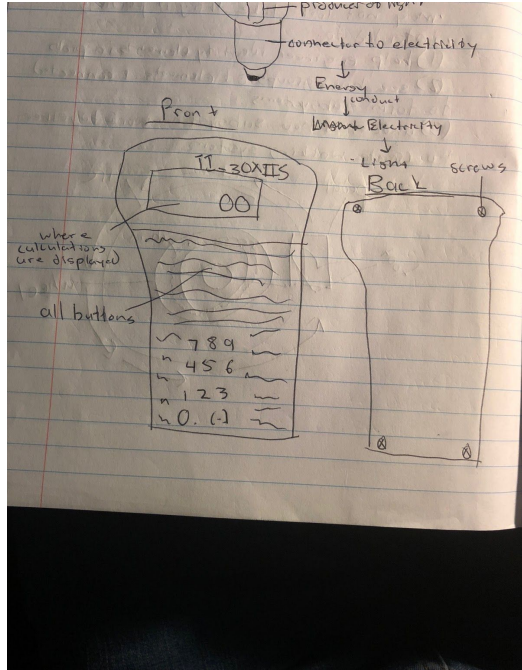 producer of light
connector to electricity
Energy
conduct
Electricity
Light
Front
Back
screws
TI-30XIIS
00
where
calculations
are displayed
all buttons
7 8 9
4 5 6
1 2 3
0 . (-)